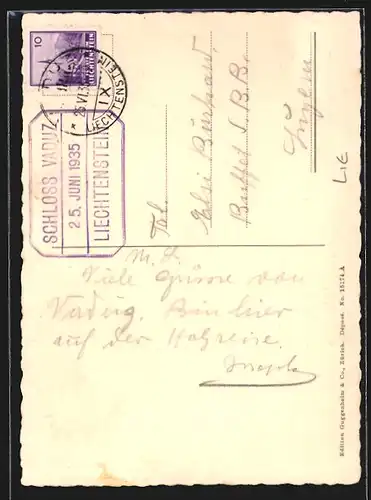 10
LIECHTENSTEIN
25 VI 35
IX
LIECHTENSTEIN
SCHLOSS VADUZ
25. JUNI 1935
LIECHTENSTEIN
Elsi
Buffet S.B.B.
LIE
M. L.
Viele Grüsse von
Vaduz. Bin hier
auf der
Edition Guggenheim & Co., Zürich. Déposé. No. 15174 A